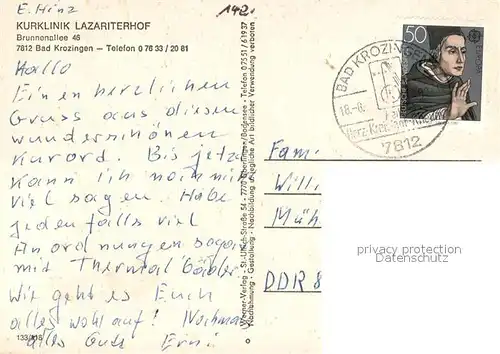 E. Hinz
142.
KURKLINIK LAZARITERHOF
Brunnenallee 46
7812 Bad Krozingen — Telefon 0 76 33 / 20 81
Hallo
Einen herzlichen
Gruss aus diesem
wunderschönen
Kurort. Bis jetzt
kann ich noch nicht
viel sagen. Habe
jedenfalls viel
Anordnungen sogar
mit Thermalbäder
Wie geht es Euch
alles wohl auf? Nochmal
alles Gute Erni
133/118
Werner-Verlag - St.-Ulrich-Straße 54 - 7770 Überlingen/Bodensee - Telefon 07551/61937
Nachahmung - Gestaltung - Nachbildung und jegliche Art bildlicher Verwendung verboten
50
EUROPA
BAD KROZINGEN
18.-8.
Herz-Kreislauf
7812
Fam.
Willi
Müh
DDR 8
privacy protection
Datenschutz